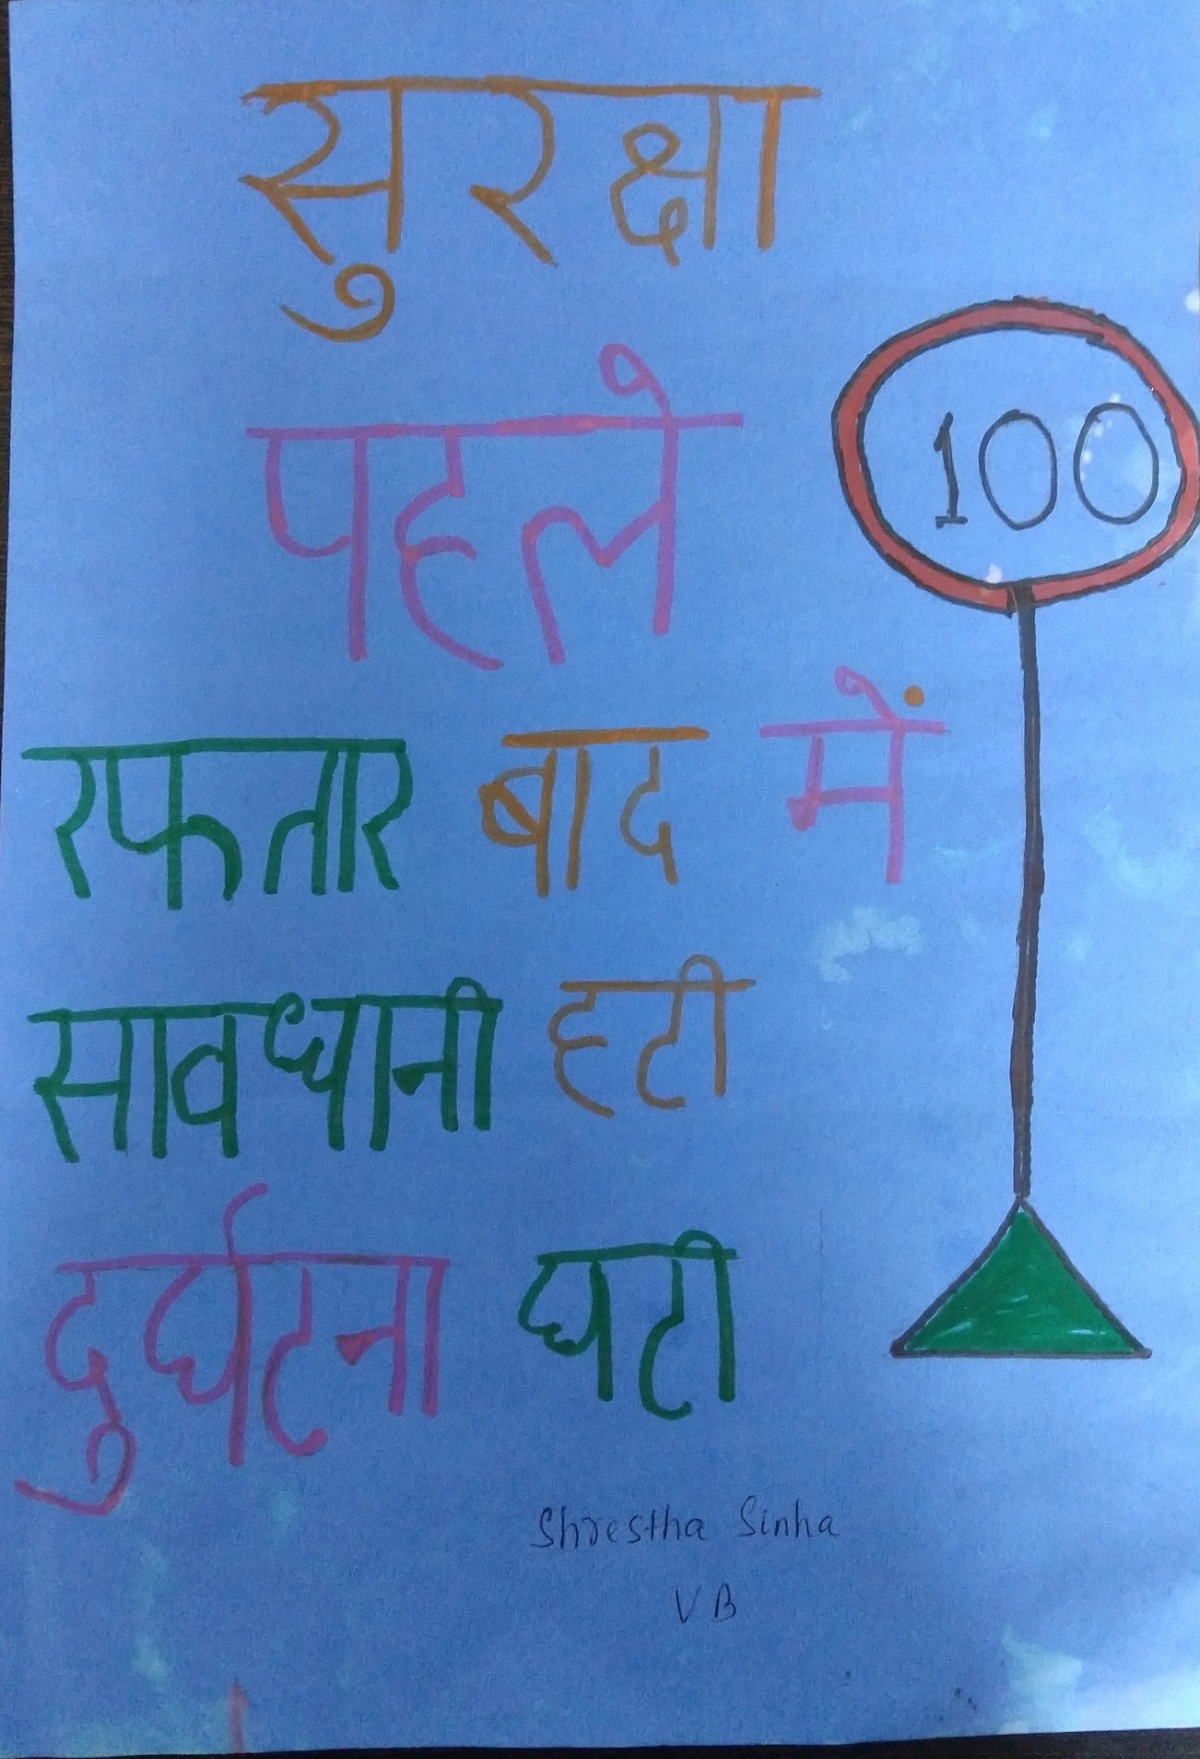 सुरक्षा
पहले
100
रफतार बाद में
सावधानी हटी
दुर्घटना घटी
Shrestha Sinha
V B